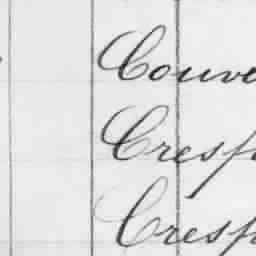 Couve
Cresp
Cresp